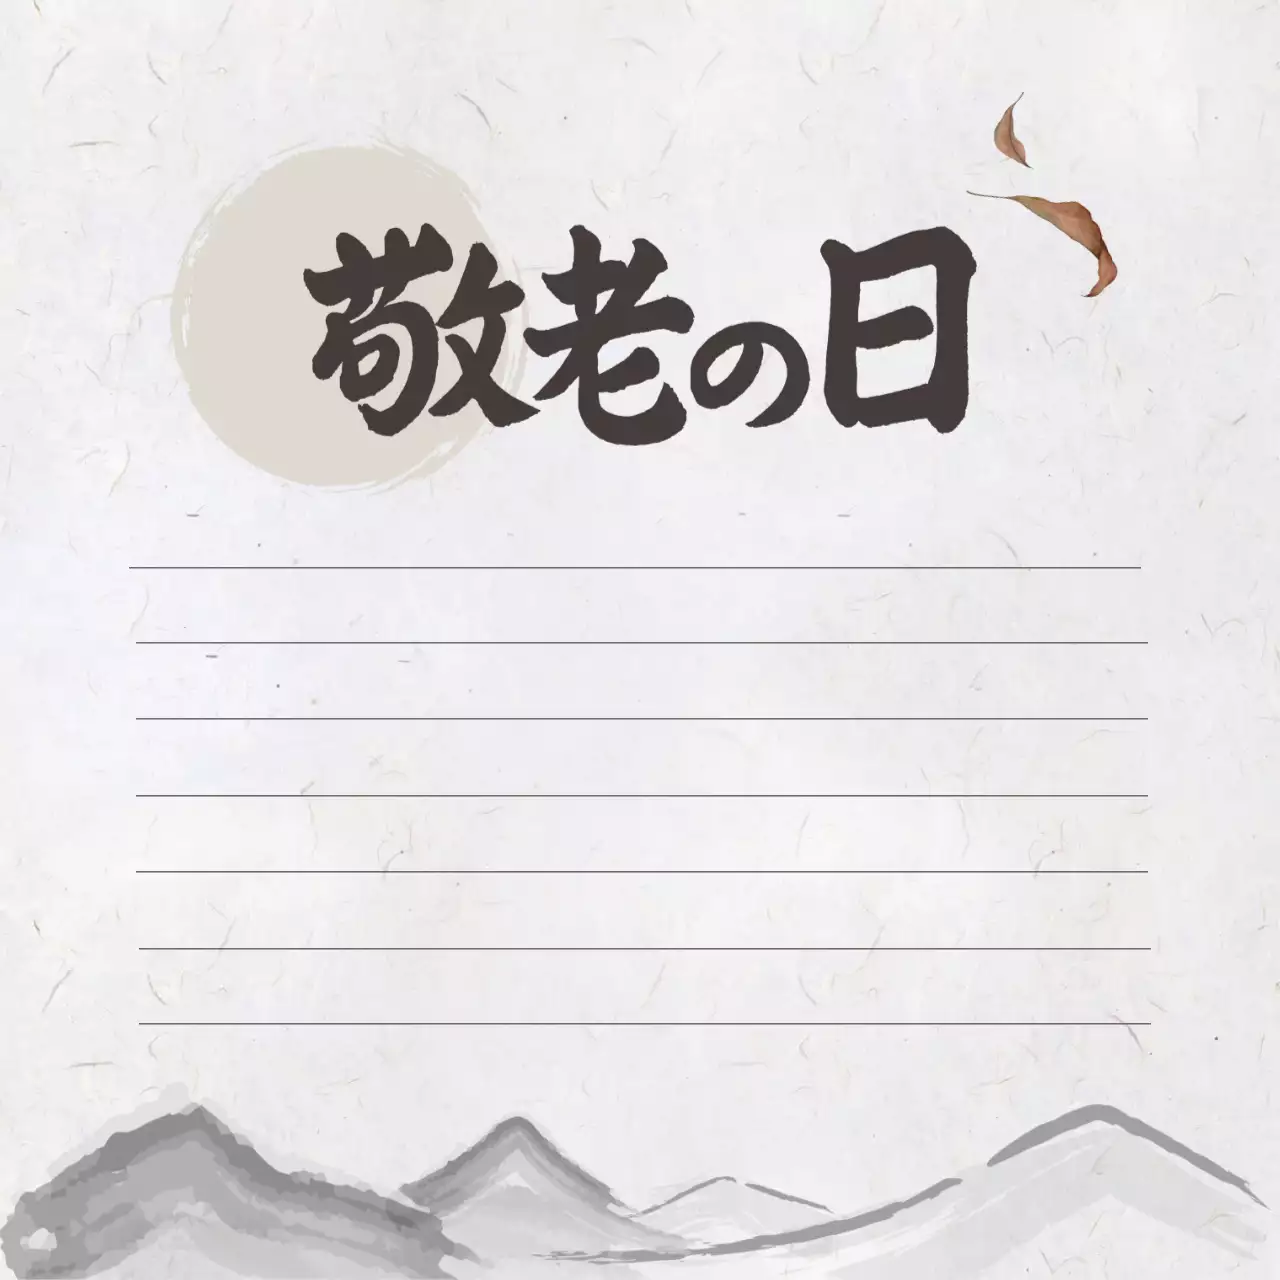 敬老の日